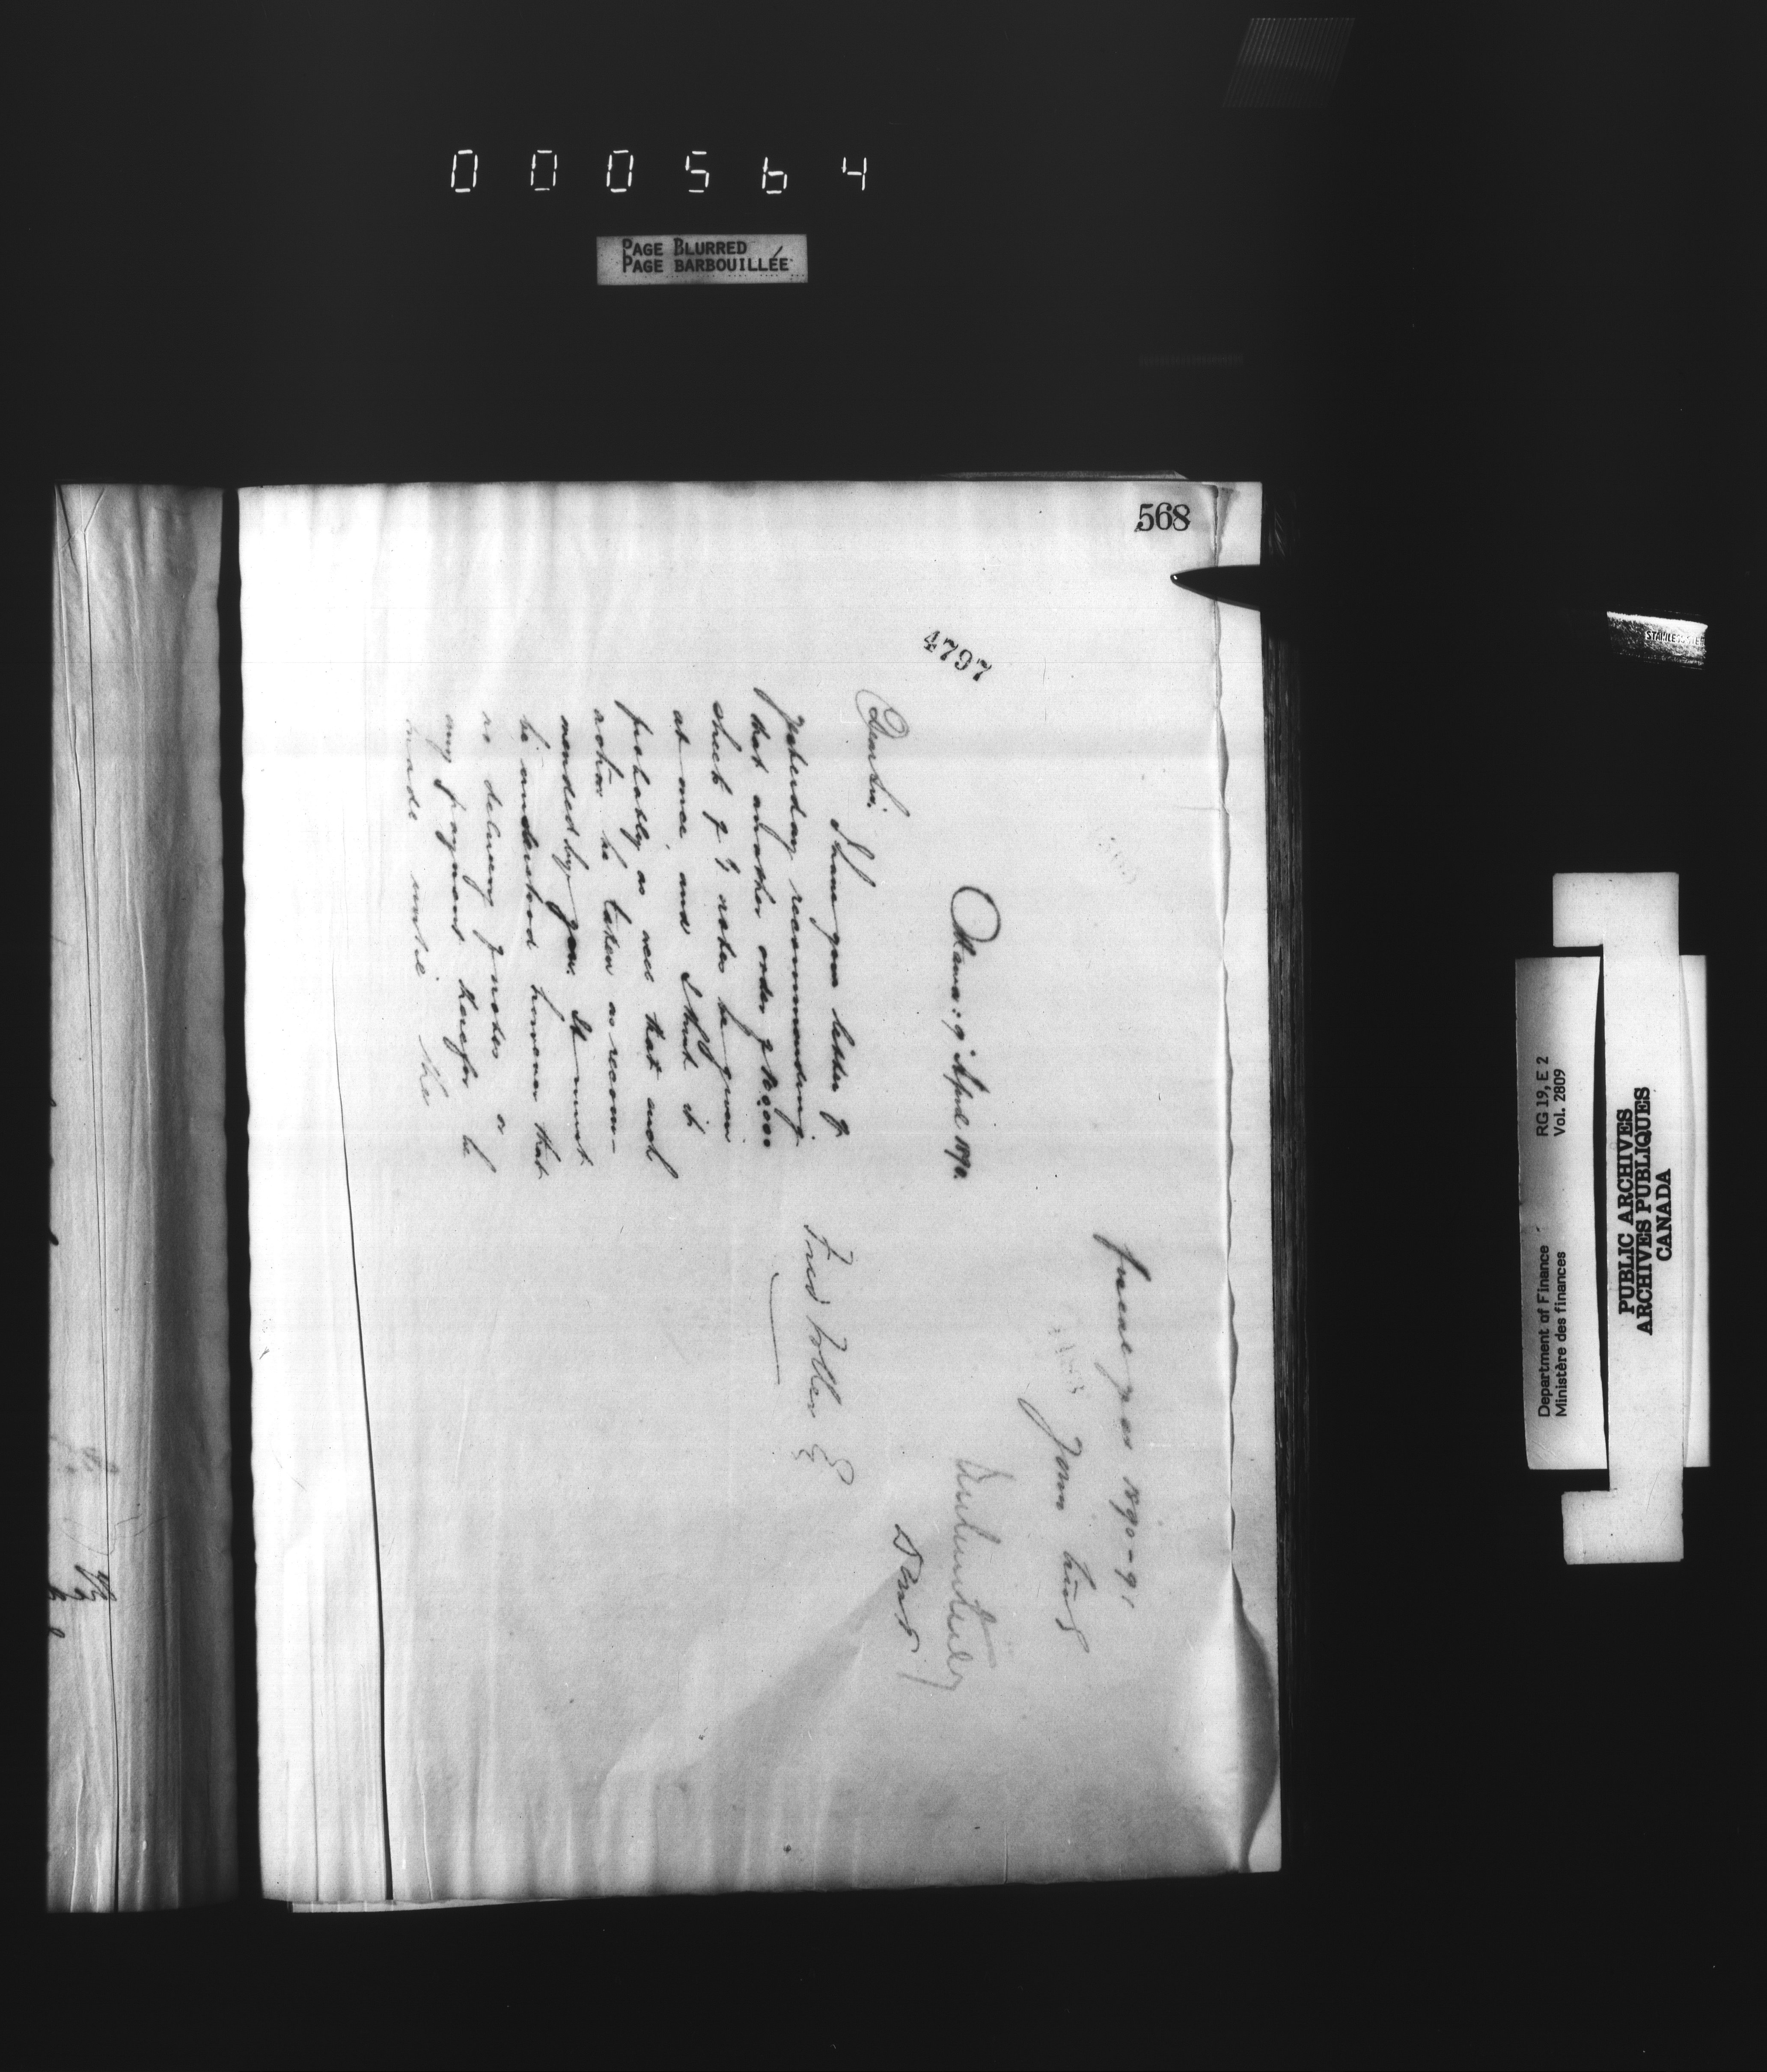 000564
PAGE BLURRED
PAGE BARBOUILLÉE
568
4797
Ottawa: 9 April 1890.
Dear Sir,
I have your letter of
yesterday recommending
that another order of 10,000
sheets of notes be given
at once and I think it
probably as well that such
action be taken as recom-
mended by you. It must
be understood however that
no delivery of notes or
any payment therefor be
made until the
fiscal year 1890-91
Yours truly
Fred Toller Esq
STAINLESS STEEL
RG 19, E 2
Vol. 2809
Department of Finance
Ministère des finances
PUBLIC ARCHIVES
ARCHIVES PUBLIQUES
CANADA